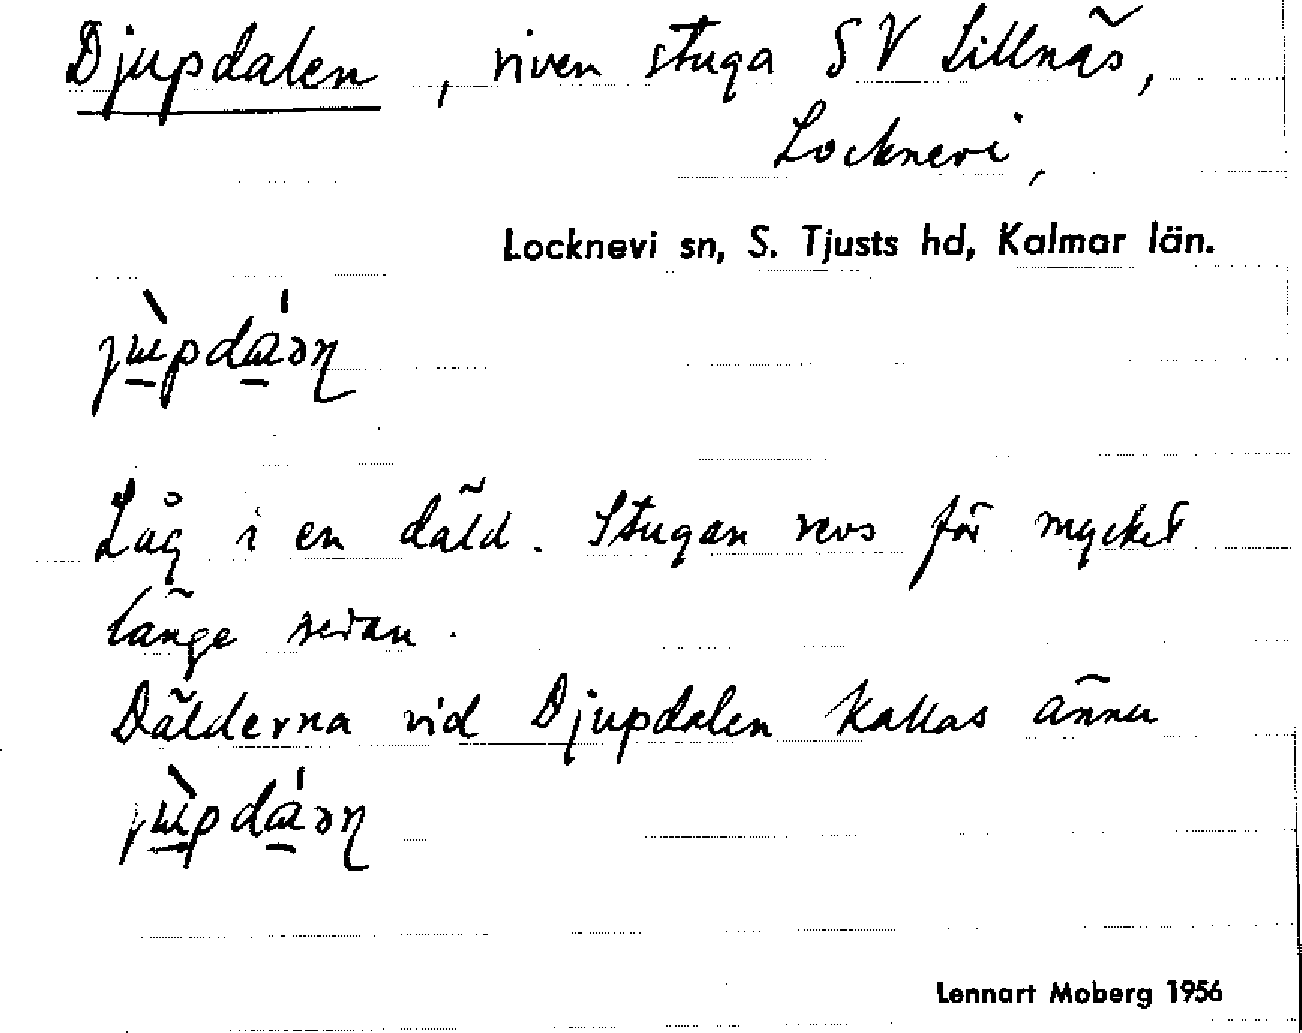 Djupdalen, riven stuga SV Lillnäs,
Locknevi,
Locknevi sn, S. Tjusts hd, Kalmar län.
Låg i en däld. Stugan revs för mycket
länge sedan.
Dälderna vid Djupdalen kallas ännu
Lennart Moberg 1956